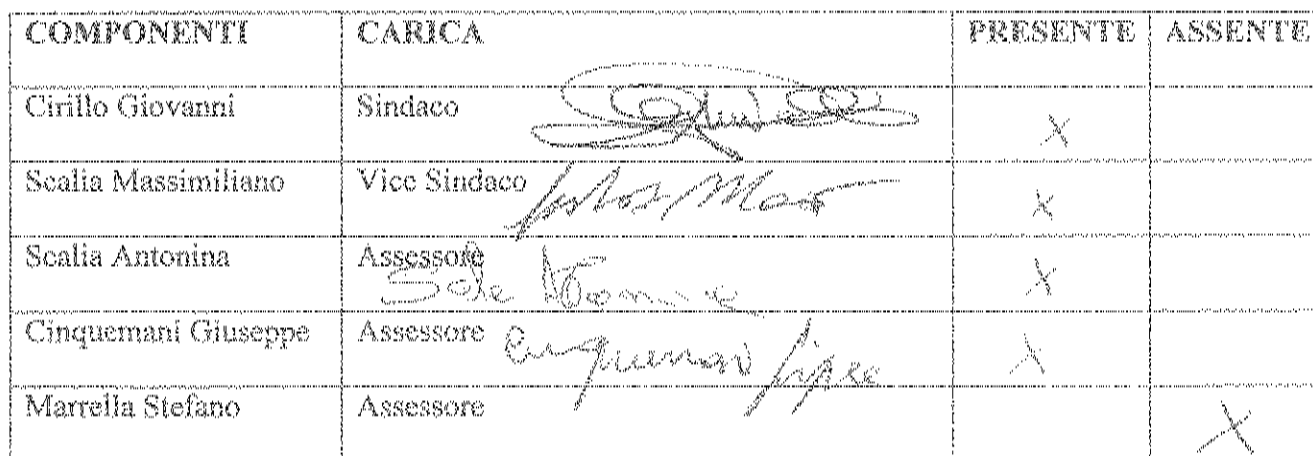 COMPONENTI CARICA PRESENTE ASSENTE
Cirillo Giovanni Sindaco X
Scalia Massimiliano Vice Sindaco X
Scalia Antonina Assessore X
Cinquemani Giuseppe Assessore X
Marrella Stefano Assessore X